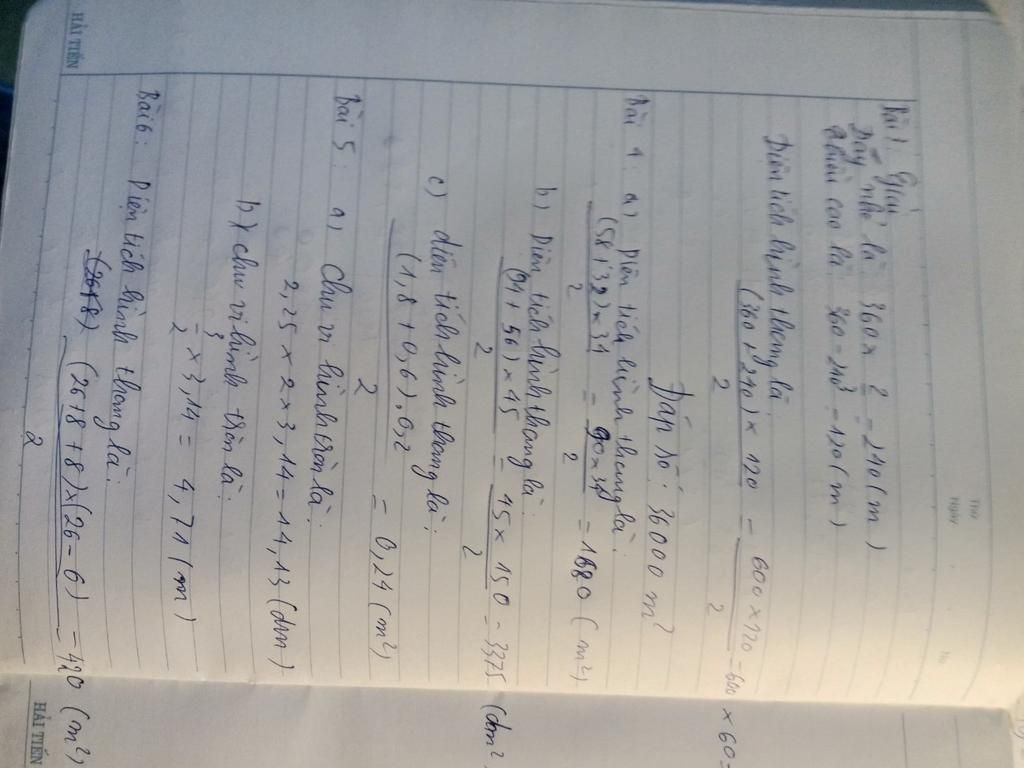 Thứ
Ngày
No
Bài 1: Giải
Đáy nhỏ là: 360 x 2/3 = 240 (m)
Chiều cao là: 360 - 240 = 120 (m)
Diện tích hình thang là:
(360 + 240) x 120 / 2 = 600 x 120 / 2 = 600 x 60 =
Đáp số: 36000 m²
Bài 4: a) Diện tích hình thang là:
(58 + 32) x 34 / 2 = 90 x 34 / 2 = (m²)
b) Diện tích hình thang là:
(94 + 56) x 45 / 2 = 45 x 150 / 2 = 3375 (dm²
c) diện tích hình thang là:
(1,8 + 0,6) . 0,2 / 2 = 0,24 (m²)
Bài 5: a) Chu vi hình tròn là:
2,25 x 2 x 3,14 = 14,13 (dm)
b) chu vi hình tròn là:
3/2 x 3,14 = 4,71 (m)
Bài 6: Diện tích hình thang là:
(26+8) (26 + 8 + 8) x (26 - 6) / 2 = 420 (m²)
HẢI TIẾN
HẢI TIẾN